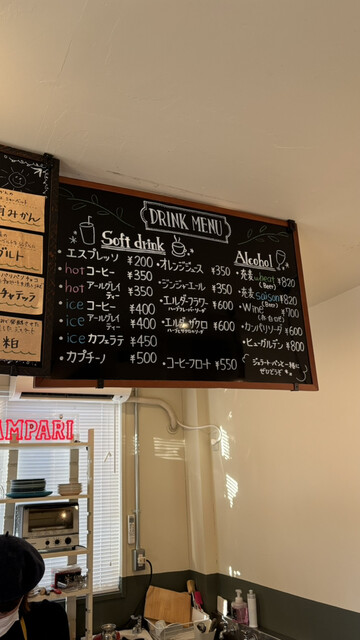 DRINK MENU
Soft drink
・エスプレッソ ¥200
・hot コーヒー ¥350
・hot アールグレイティー ¥350
・ice コーヒー ¥400
・ice アールグレイティー ¥400
・ice カフェラテ ¥450
・カプチーノ ¥500
・オレンジジュース ¥350
・ジンジャエール ¥350
・エルダーフラワー ¥600
・エルダーザクロ ¥600
・コーヒーフロート ¥550
Alcohol
wheat ¥820
(Beer)
Saison ¥820
(Beer)
・Wine ¥700
・カンパリソーダ ¥600
・ヒューガルデン ¥800
ジェラート・パンと一緒に
ぜひどうぞ
みかん
チョコラッテ
粕
AMPARI